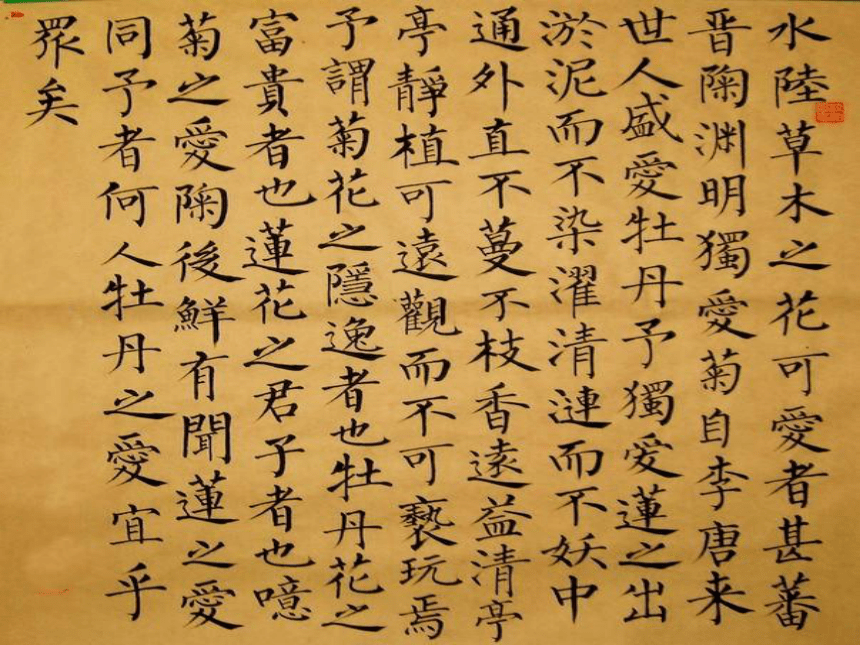 水陸草木之花可愛者甚蕃
晋陶渊明獨愛菊自李唐来
世人盛愛牡丹予獨爱蓮之出
淤泥而不染濯清漣而不妖中
通外直不蔓不枝香遠益清亭
亭靜植可遠觀而不可褻玩焉
予謂菊花之隱逸者也牡丹花之
富貴者也蓮花之君子者也噫
菊之愛陶後鮮有聞蓮之愛
同予者何人牡丹之愛宜乎
眾矣